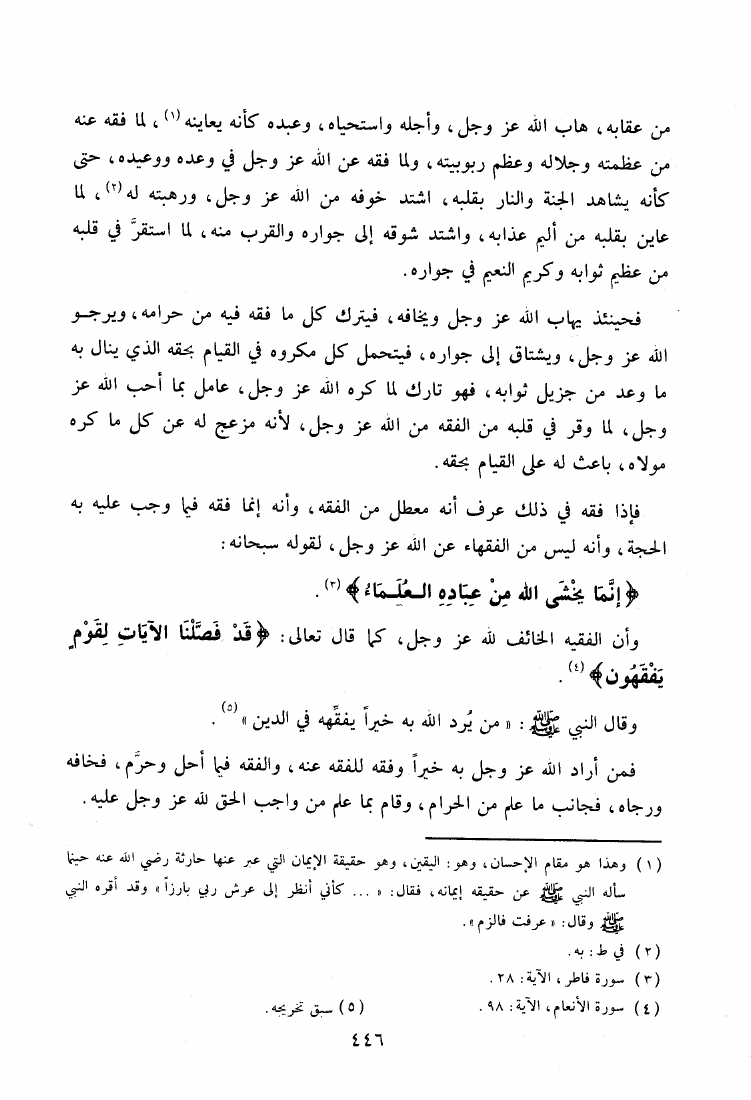 من عقابه، هاب الله عز وجل، وأجله واستحياه، وعبده كأنه يعاينه(١)، لما فقه عنه
من عظمته وجلاله وعظم ربوبيته، ولما فقه عن الله عز وجل في وعده ووعيده، حتى
كأنه يشاهد الجنة والنار بقلبه، اشتد خوفه من الله عز وجل، ورهبته له(٢)، لما
عاين بقلبه من أليم عذابه، واشتد شوقه إلى جواره والقرب منه، لما استقرَّ في قلبه
من عظيم ثوابه وكريم النعيم في جواره.
فحينئذ يهاب الله عز وجل ويخافه، فيترك كل ما فقه فيه من حرامه، ويرجو
الله عز وجل، ويشتاق إلى جواره، فيتحمل كل مكروه في القيام بحقه الذي ينال به
ما وعد من جزيل ثوابه، فهو تارك لما كره الله عز وجل، عامل بما أحب الله عز
وجل، لما وقر في قلبه من الفقه من الله عز وجل، لأنه مزعج له عن كل ما كره
مولاه، باعث له على القيام بحقه.
فإذا فقه في ذلك عرف أنه معطل من الفقه، وأنه إنما فقه فيما وجب عليه به
الحجة، وأنه ليس من الفقهاء عن الله عز وجل، لقوله سبحانه:
﴿إنَّمَا يَخْشَى الله مِنْ عِبَادِهِ الـعُلَـمَاءُ﴾(٣).
وأن الفقيه الخائف لله عز وجل، كما قال تعالى: ﴿قَدْ فَصَّلْنَا الآيَاتِ لِقَوْمٍ
يَفْقَهُون﴾(٤).
وقال النبي ﷺ: «من يُرد الله به خيراً يفقِّهه في الدين»(٥).
فمن أراد الله عز وجل به خيراً وفقه للفقه عنه، والفقه فيما أحل وحرَّم، فخافه
ورجاه، فجانب ما علم من الحرام، وقام بما علم من واجب الحق لله عز وجل عليه.
(١) وهذا هو مقام الإحسان، وهو: اليقين، وهو حقيقة الإيمان التي عبر عنها حارثة رضي الله عنه حينما
سأله النبي ﷺ عن حقيقه إيمانه، فقال: «... كأني أنظر إلى عرش ربي بارزاً» وقد أقره النبي
ﷺ وقال: «عرفت فالزم».
(٢) في ط: به.
(٣) سورة فاطر، الآية: ٢٨.
(٤) سورة الأنعام، الآية: ٩٨. (٥) سبق تخريجه.
٤٤٦